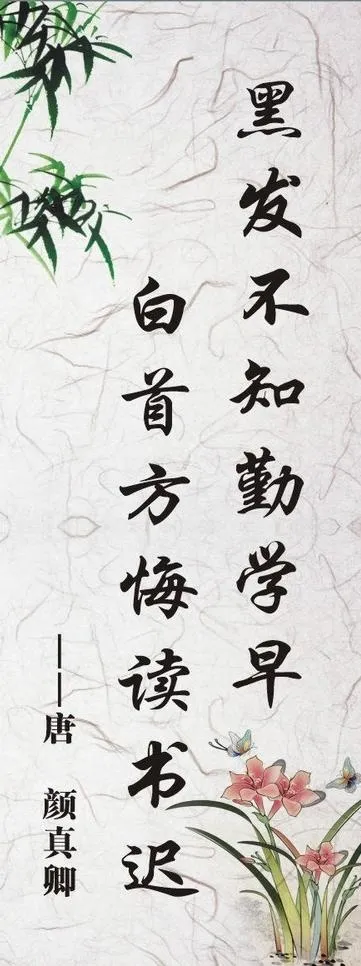 黑发不知勤学早
白首方悔读书迟
——唐 颜真卿